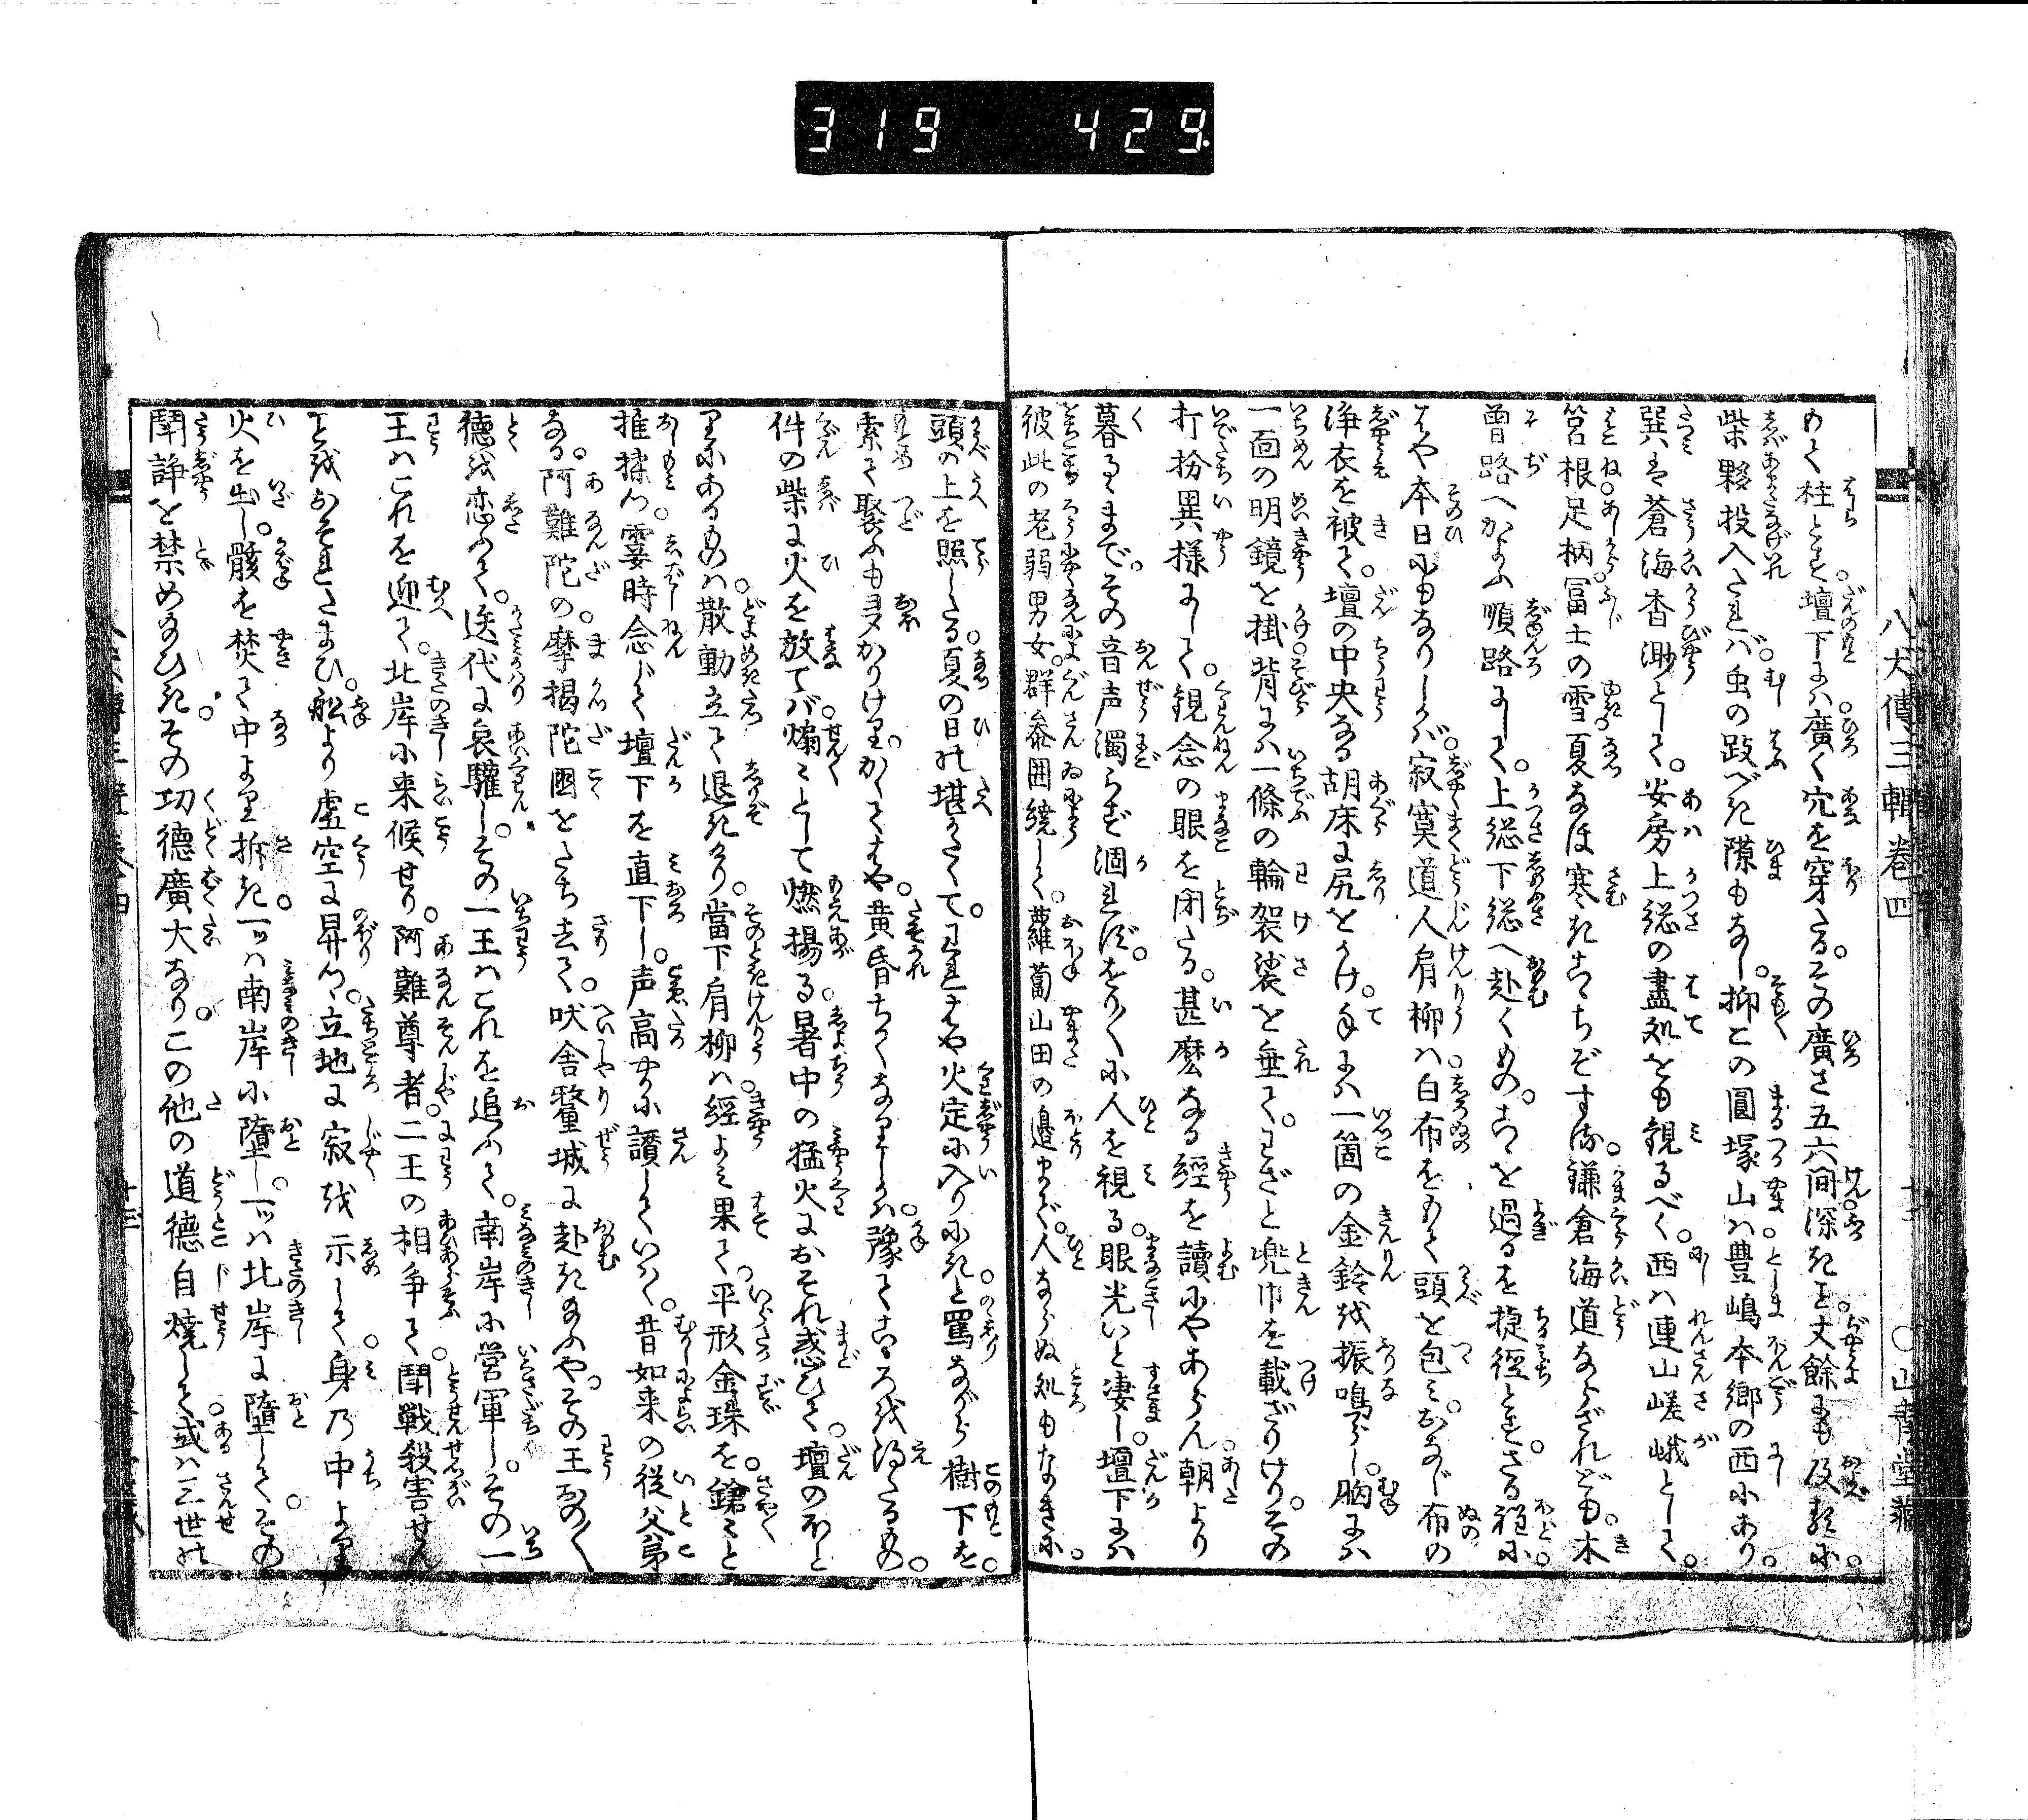 319 429
八犬傳三輯卷四
○山青堂藏
めて柱とす。壇下には廣く穴を穿たる。その廣さ五六間深きこと丈餘にも及ぶに。
柴夥投入たれば。虫の跂べき隙もなし。抑この圓塚山は豊嶋本郷の西にあり。
巽は蒼海杳渺として。安房上総の盡処をも観るべく。西は連山嵯峨として。
筥根足柄冨士の雪夏なほ寒きこゝちぞする。鎌倉海道ならざれども。木
曽路へかよふ順路にして。上総下総へ赴くもの。こゝを過るを捷徑とす。さる程に。
はや本日にもなりしかば。寂寞道人肩柳は白布をもて頭を包み。おなじ布の
浄衣を被て。壇の中央なる胡床に尻をかけ。手には一箇の金鈴を振鳴らし。胸には
一面の明鏡を掛。背には一條の輪袈裟を垂て。わざと兜巾を載ざりけり。その
打扮異様にして。観念の眼を閉たる。甚麽なる經を讀にやあらん。朝より
暮るゝまで。その音声濁らず涸れず。をり〳〵に人を視る。眼光いと凄し。壇下には
彼此の老弱男女。群参囲繞して。蘿蔔山田の邉まで。人ならぬ処もなきに。
頭の上を照したる。夏の日に堪かねて。われはや火定に入りにきと罵ながら樹下を。
索て聚ふも夛かりけり。かくてはや。黄昏ちかくなりしかば。豫てこゝろ得たるもの。
件の柴に火を放てば。煽々として燃揚る。暑中の猛火におそれ惑ひて。壇のほと
りにあるものは。散動立て退きけり。當下肩柳は經よみ果て。平形金珠を。鎗々と
推揉つ。霎時念じて壇下を直下し。声高やかに讃していはく。昔如来の従父弟
なる。阿難陀の。摩掲陀國をたち去て。吠舎釐城に赴き給ふや。その王おの〳〵
徳を恋ふて。送代に哀驩し。その一王はこれを追ふて。南岸に営軍し。その一
王はこれを迎て。北岸に来候せり。阿難尊者。二王の相争て。闘戦殺害せん
ことをおそれたまひ。舩より虚空に昇つ。立地に寂を示して。身の中より
火を出し。骸を焚て中より拆き。一ッは南岸に墮し。一ッは北岸に墮して。その
闘諍を禁め給ひき。その功徳廣大なり。この他の道徳自燒して。或は三世の